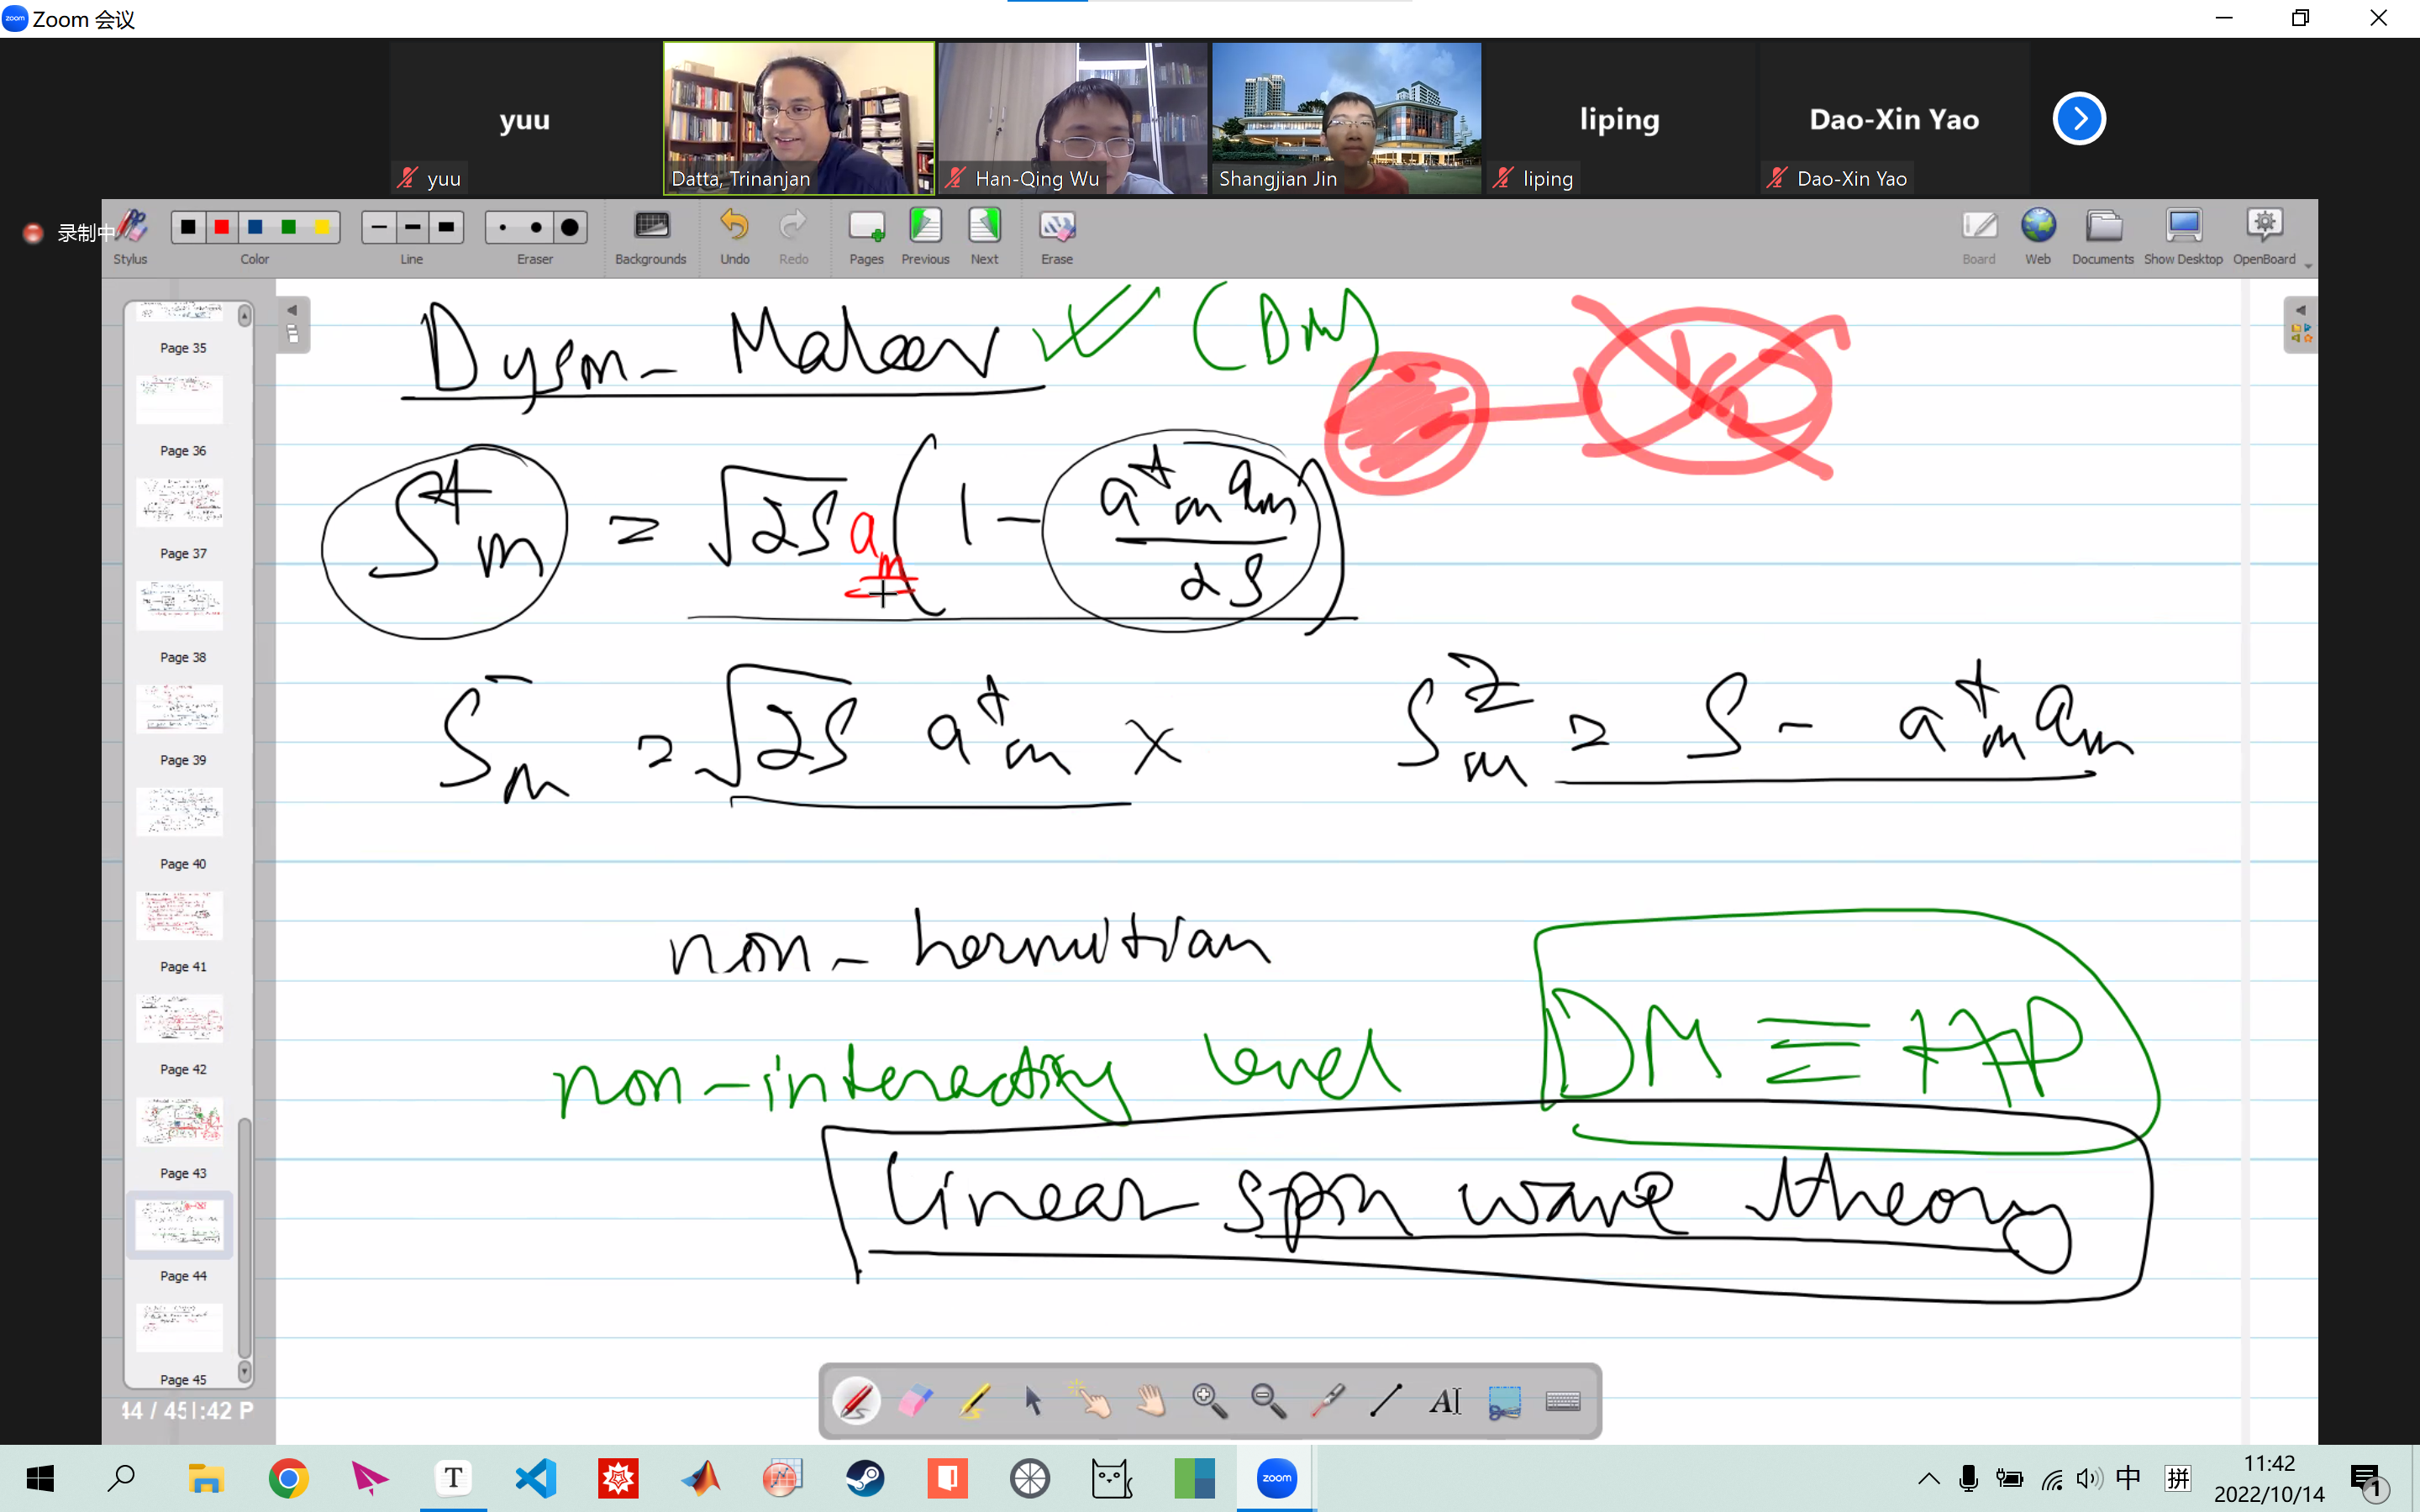 Zoom 会议
yuu
liping
Dao-Xin Yao
yuu
Datta, Trinanjan
Han-Qing Wu
Shangjian Jin
liping
Dao-Xin Yao
录制中
Stylus
Color
Line
Eraser
Backgrounds
Undo
Redo
Pages
Previous
Next
Erase
Board
Web
Documents
Show Desktop
OpenBoard
Page 35
Page 36
Page 37
Page 38
Page 39
Page 40
Page 41
Page 42
Page 43
Page 44
Page 45
44 / 45
1:42 P
Dyson - Maleev (DM)
S⁺ₘ = √2S aₘ (1 - a⁺ₘ aₘ / 2S)
S⁻ₘ = √2S a⁺ₘ ×
Sᶻₘ = S - a⁺ₘ aₘ
non-hermitian
non-interacting level
DM ≡ HP
linear spin wave theory
AI
T
zoom
中
拼
11:42
2022/10/14
1